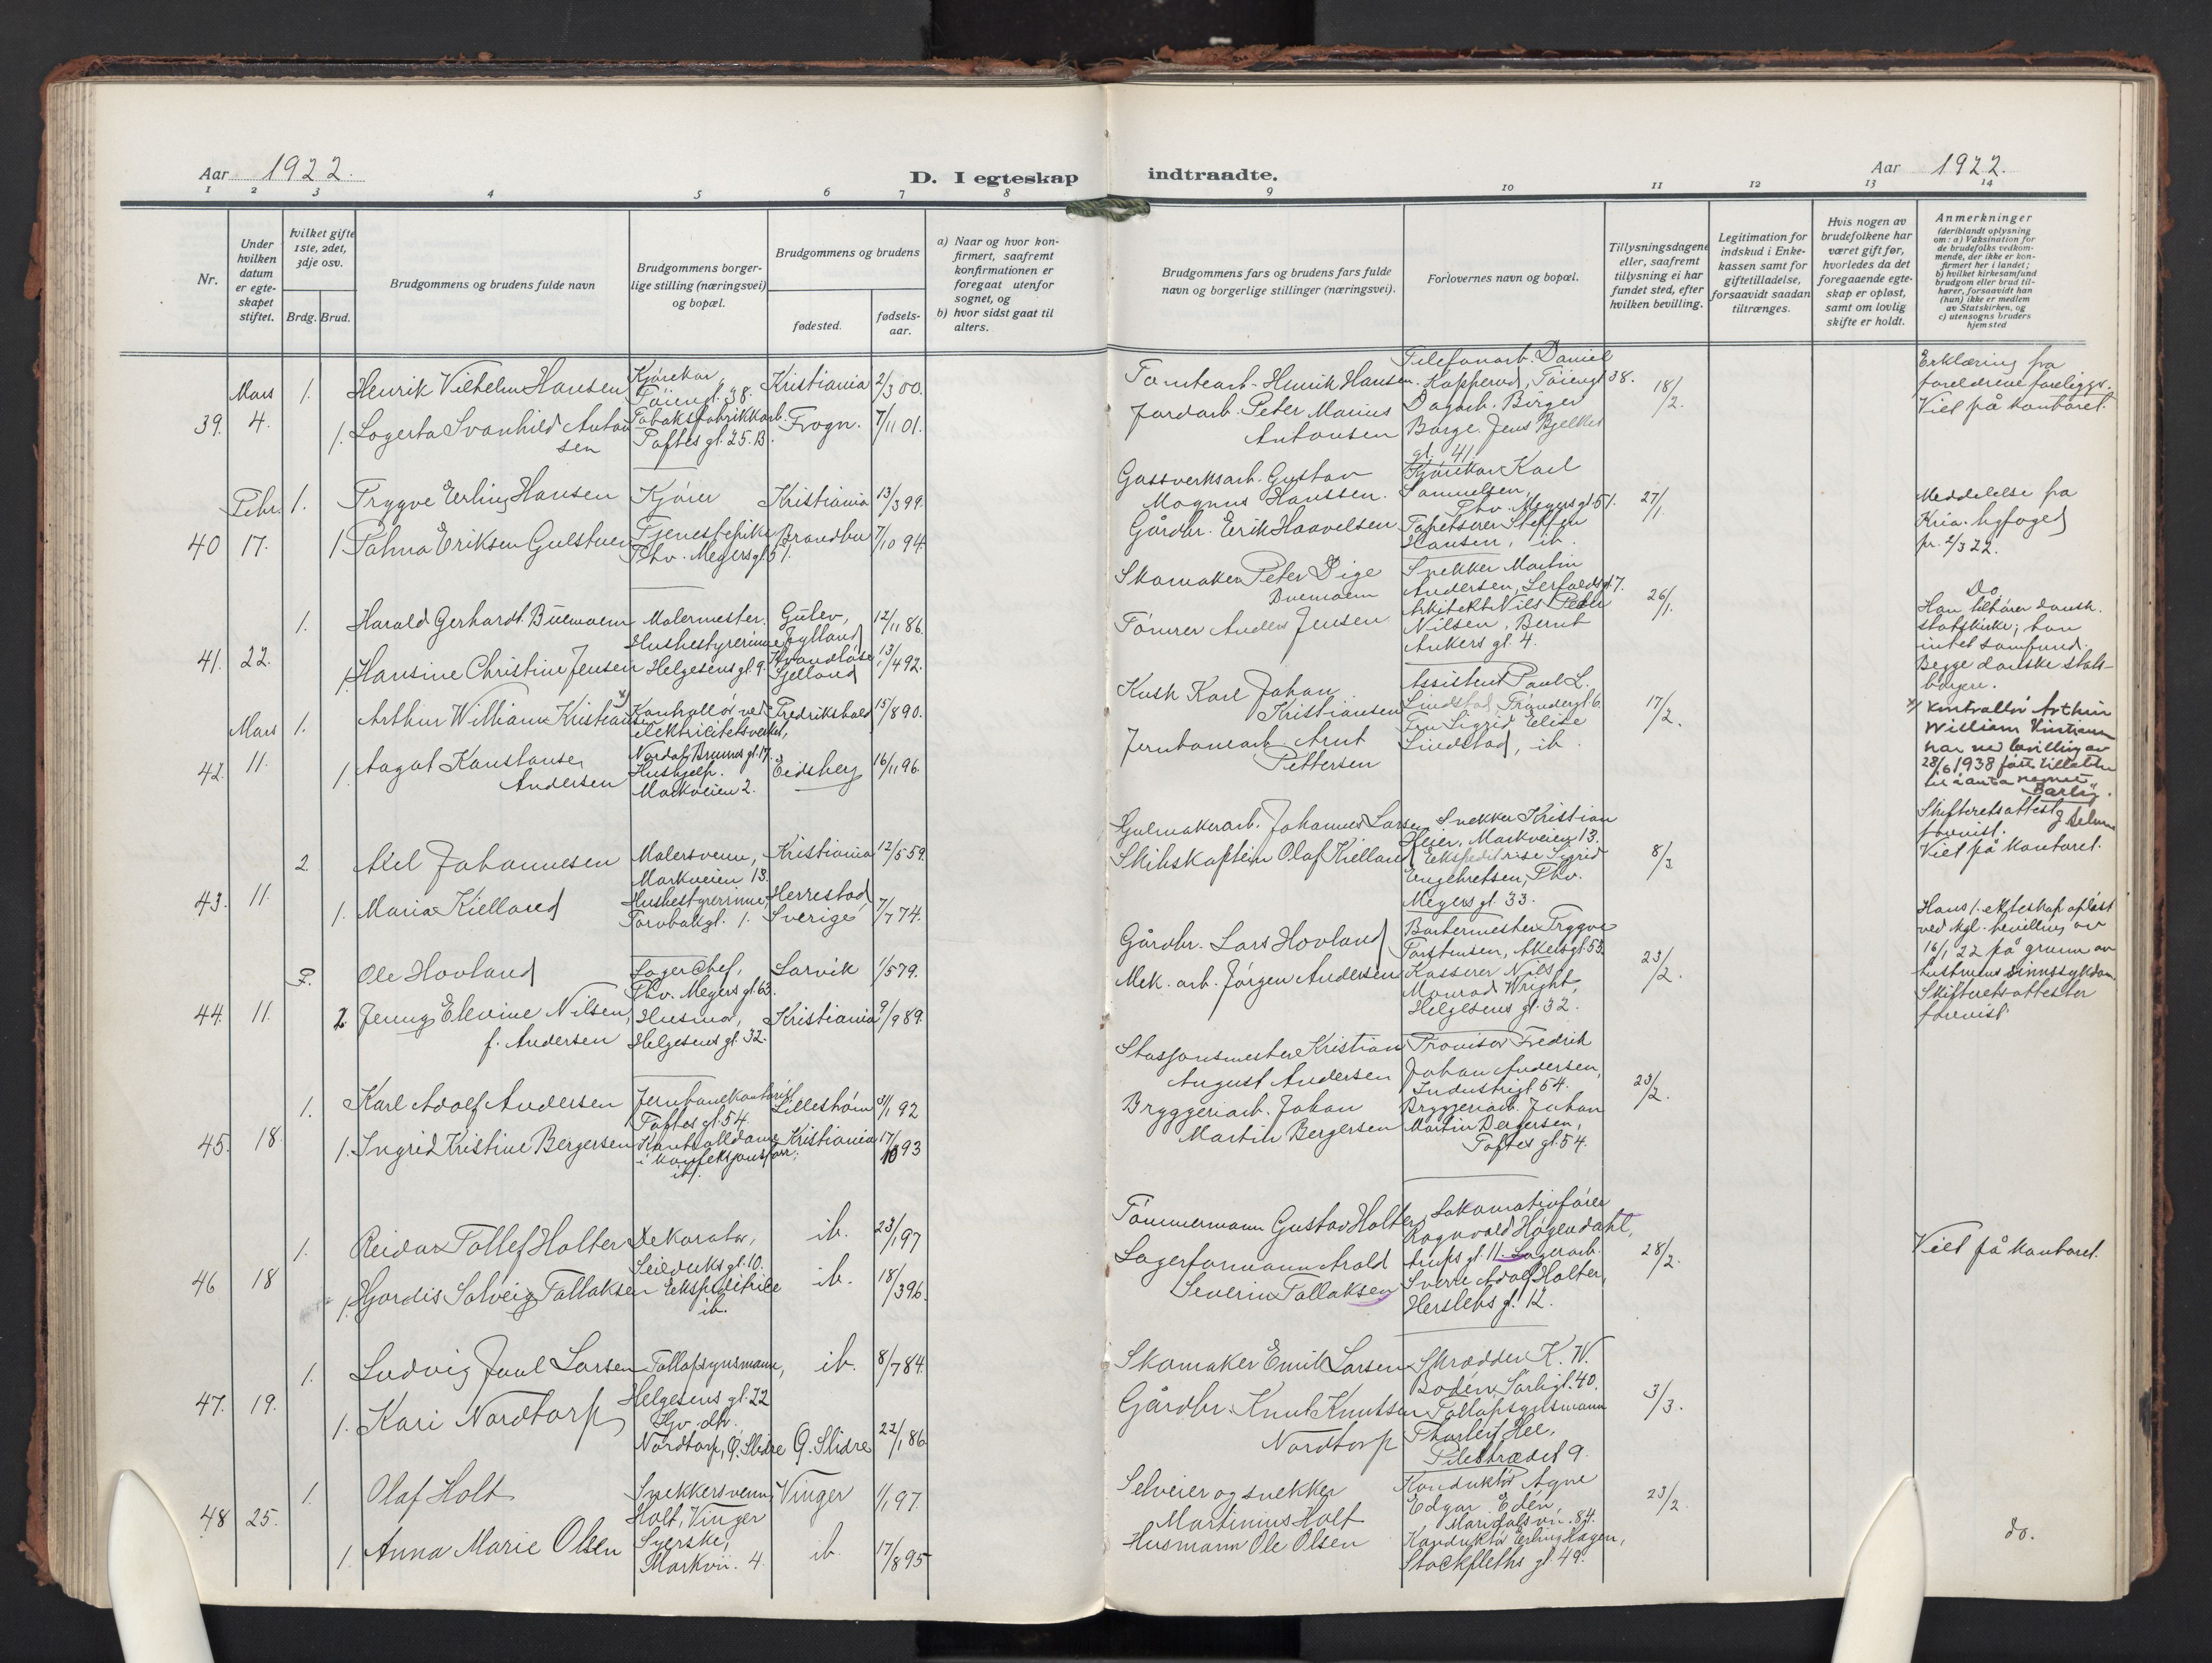 Aar 1922.
D. I egteskap
indtraadte.
Aar 1922.
1 2 3 4 5 6 7 8 9 10 11 12 13 14
Nr.
Under hvilken datum er egteskapet stiftet.
hvilket gifte 1ste, 2det, 3dje osv.
Brdg. Brud.
Brudgommens og brudens fulde navn
Brudgommens borgerlige stilling (næringsvei) og bopæl.
Brudgommens og brudens
fødested.
fødselsaar.
a) Naar og hvor konfirmert, saafremt konfirmationen er foregaat utenfor sognet, og
b) hvor sidst gaat til alters.
Brudgommens fars og brudens fars fulde navn og borgerlige stillinger (næringsvei).
Forlovernes navn og bopæl.
Tillysningsdagene eller, saafremt tillysning ei har fundet sted, efter hvilken bevilling.
Legitimation for indskud i Enkekassen samt for giftetilladelse, forsaavidt saadan tiltrænges.
Hvis nogen av brudefolkene har været gift før, hvorledes da det foregaaende egteskap er opløst, samt om lovlig skifte er holdt.
Anmerkninger
(deriblandt oplysning om: a) Vaksination for de brudefolks vedkommende, der ikke er konfirmert her i landet;
b) hvilket kirkesamfund brudgom eller brud tilhører, forsaavidt han (hun) ikke er medlem av Statskirken, og
c) utensogns bruders hjemsted
39. Mars 4.
1. Henrik Vilhelm Hansen
Kjørekar, Tøieng. 38.
Kristiania 2/3 00.
1. Logerta Svanhild Antonsen
Tabaksfabrikkarb. Toftes gt. 25.B.
Frogn. 7/11 01.
Tomtearb. Henrik Hansen.
Jordarb. Peter Marius Antonsen
Telefonarb. Daniel Kopperud, Tøiengt 38.
Dagarb. Birger Borge. Jens Bjelkes gt. 41.
18/2.
Erklæring fra
forældrene foreligger.
Viet på kontoret.
40 Febr. 17.
1. Trygve Erling Hansen
Kjører
Kristiania 13/3 99.
1 Palma Eriksen Gulstuen
Tjenestepike Thv. Meyersgt 51.
Brandbu 7/10 94.
Gassverksarb. Gustav Magnus Hanssen.
Gårdbr. Erik Haavelsen
Kjørekar Karl Samuelsen, Thv. Meyersgt 51.
Tapetserer Steffen Hansen, ib.
27/1.
Meddelelse fra
Kria. byfoged
pr. 2/3 22.
41. 22.
1. Harald Gerhardt Buemann
Malermester.
Gulev, Jylland 12/11 86.
1. Hansine Christine Jensen
Husbestyrerinne Helgesens gt. 9.
Sjelland 13/4 92.
Skomaker Peter Dige Buemann
Tømrer Anders Jensen
Snekker Martin Andersen, Lerfaldsgt 7.
Arkitekt Nils Peder Nilsen, Bernt Ankers gt. 4.
26/1.
Do.
Han tilhører dansk.
statskirke; hun
intet samfund.
Begge danske statsborgere.
42. Mars 11.
1. Arthur William Kristiansen x
Kontrollør ved elektricitetsverket, Nordal Brunns gt. 17.
Fredrikshald 15/8 90.
1. Aagot Konstanse Andersen
Hushjelp. Markveien 2.
Eidsberg 16/11 96.
Kusk Karl Johan Kristiansen
Jernbanearb. Arnt Pettersen
Assistent Paul L. Lindstad, Trondergt 6.
Fru Sigrid Elise Lindstad, ib.
17/2.
x/ Kontrollør Arthur
William Kristiansen
har ved bevilling av
28/6 1938 fått tillatelse
til å anta navnet
"Barlig".
43. 11.
2. Axel Johannesen
Malersvenn, Markveien 13.
Kristiania 12/5 59.
1. Maria Kielland
Husbestyrerinne,
Herrestad, Sverige 7/7 74.
Gulmakerarb. Johannes Larsen
Skibskaptein Olaf Kielland
Snekker Kristian Heier, Markveien 13.
Ekspeditrise Sigrid Engebretsen, Thv. Meyers gt. 33.
8/3
Skifteretsattest
forevist.
Viet på kontoret.
44. 11.
F. Ole Hovland
Lagerchef, Thv. Meyers gt. 63.
Larvik 1/5 79.
2. Jenny Elevine Nilsen, f. Andersen
Husmor, Helgesens gt. 32.
Kristiania 9/9 89.
Gårdbr. Lars Hovland
Mek. arb. Jørgen Andersen
Bartermester Trygve Torstensen, Akersgt. 53.
Kasserer Nils Monrad Wright, Helgesens gt. 32.
23/2.
Hans 1. ekteskap opløst
ved kgl. bevilling av
16/1 22 på grunn av
hustruens sinnssykdom.
Skifteretsattester
forevist.
45. 18.
1. Karl Adolf Andersen
Jernbanekontorist Toftes gt. 54
Lillestrøm 31/1 92
1. Ingrid Kristine Bergersen
Kontrolldame i konfeksjonsforr. ib.
Kristiania 17/10 93
Stasjonsmester Kristian August Andersen
Bryggeriarb. Johan Martin Bergersen
Provisor Fredrik Johan Andersen, Industrigt 54.
Bryggeriarb. Johan Martin Bergersen, Toftes gt. 54.
23/2.
46 18
1. Reidar Tollef Holter
Dekoratør, Seilduks gt. 10.
ib. 23/1 97
1. Hjørdis Solveig Tallaksen
Ekspeditrice ib.
ib. 18/3 96.
Tømmermann Gustav Holter
Lagerformann Arald Severin Tallaksen
Lokomotivfører Ragnvald Høgendahl, Arups gt. 11.
Lagerarb. Sverre Adolf Holter, Herslebs gt. 12.
28/2.
Viet på kontoret.
47. 19.
1. Ludvig Juul Larsen
Tollopsynsmann, Helgesens gt. 22
ib. 8/7 84.
1. Kari Nordtorp
Nordtorp, Ø. Slidre
Ø. Slidre 22/1 86
Skomaker Emil Larsen
Gårdbr. Knut Knutssen Nordtorp
Skrædder K. W. Bodén, Sarsgt. 40.
Tollopsynsmann Thorleif Hee, Pilestrædet 9.
3/3.
48 25.
1. Olaf Holt
Snekkersvenn, Holt, Vinger
Vinger 1/1 97.
1. Anna Marie Olsen
Syerske, Markvei. 4.
ib. 17/8 95
Selveier og snekker Martinius Holt
Husmann Ole Olsen
Konduktør Agne Edgar Edén, Maridalsvn. 84.
Konduktør Erling Hagen, Stockfleths gt. 49.
23/2.
do.